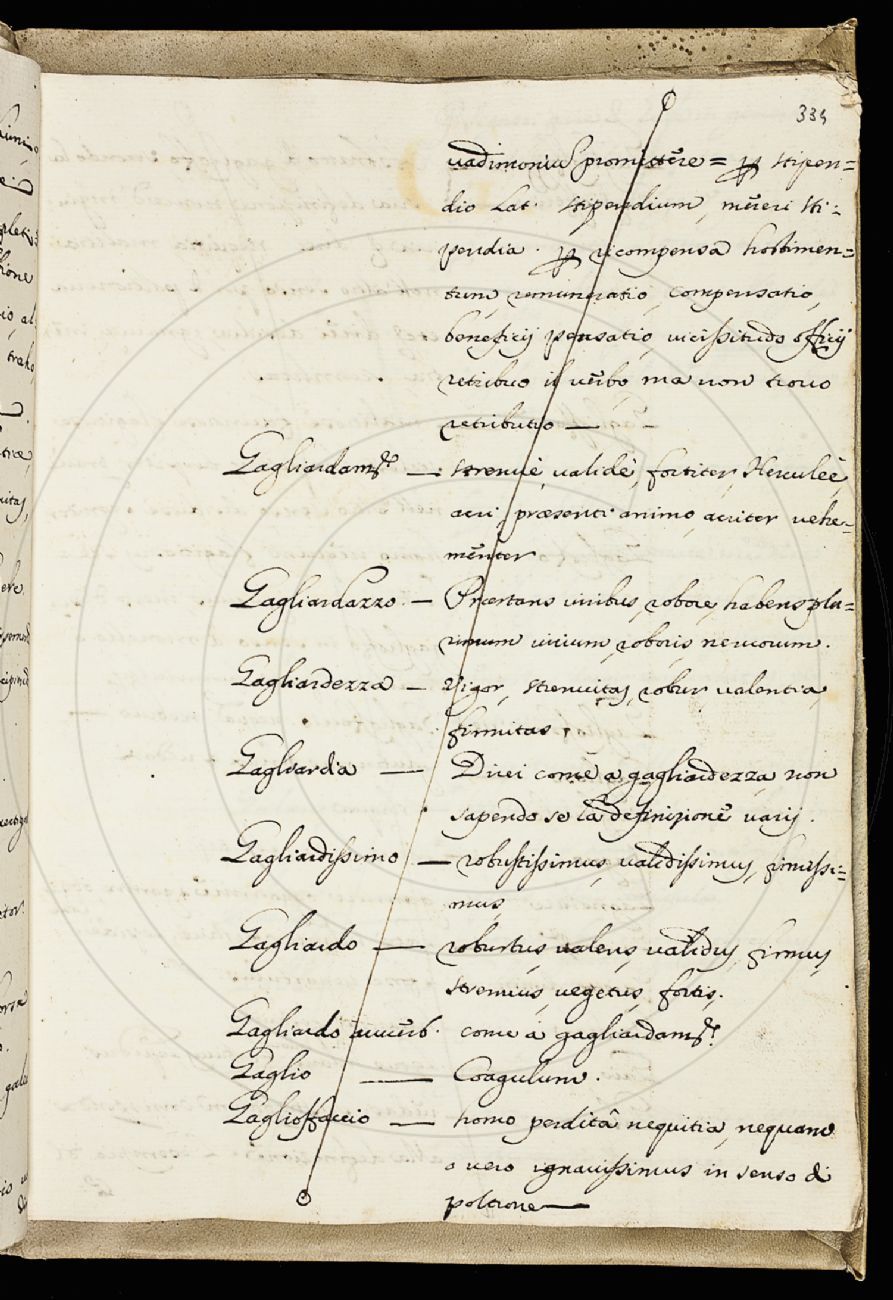 334
vadimonium promittere = p stipen=
dio Lat. stipendium, mereri sti=
pendia. p ricompensa hostimen=
tum, remuneratio, compensatio,
beneficij pensatio, vicissitudo officij
retribuo il verbo, ma non trovo
retributio —
Gagliardamte — strenuè, validè, fortiter, Herculeè,
acri, præsenti animo, acriter vehe=
menter
Gagliardazzo — Præstans viribus, robore, habens plu=
rimum virium, roboris, nervorum.
Gagliardezza — Vigor, strenuitas, robur, valentia,
firmitas.
Gagliardia — Dicei come a gagliardezza, non
sapendo se la definizione varij.
Gagliardissimo — robustissimus, validissimus, firmissi=
mus,
Gagliardo — robustus, valens, validus, firmus,
strenuus, vegetus, fortis.
Gagliardo avverb. come à gagliardamte
Gaglio — Coagulum.
Gaglioffaccio — homo perditâ nequitia, nequam
o vero ignavissimus in senso di
poltrone —